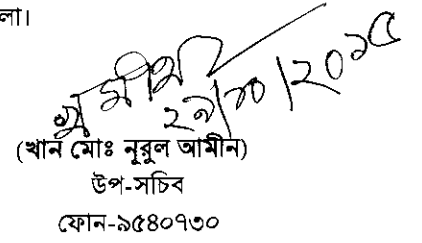 লা।
২৯/১০/২০১৫
(খান মোঃ নূরুল আমীন)
উপ-সচিব
ফোন-৯৫৪০৭৩০